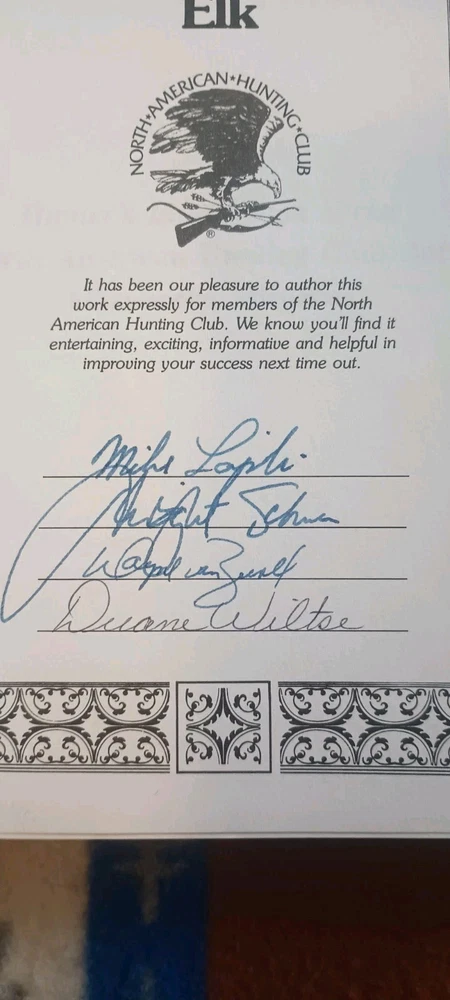 Elk
NORTH★AMERICAN★HUNTING★CLUB
®
It has been our pleasure to author this
work expressly for members of the North
American Hunting Club. We know you'll find it
entertaining, exciting, informative and helpful in
improving your success next time out.
Mike Lapinski
Dwight Schuh
Wayne van Zwoll
Duane Wiltse